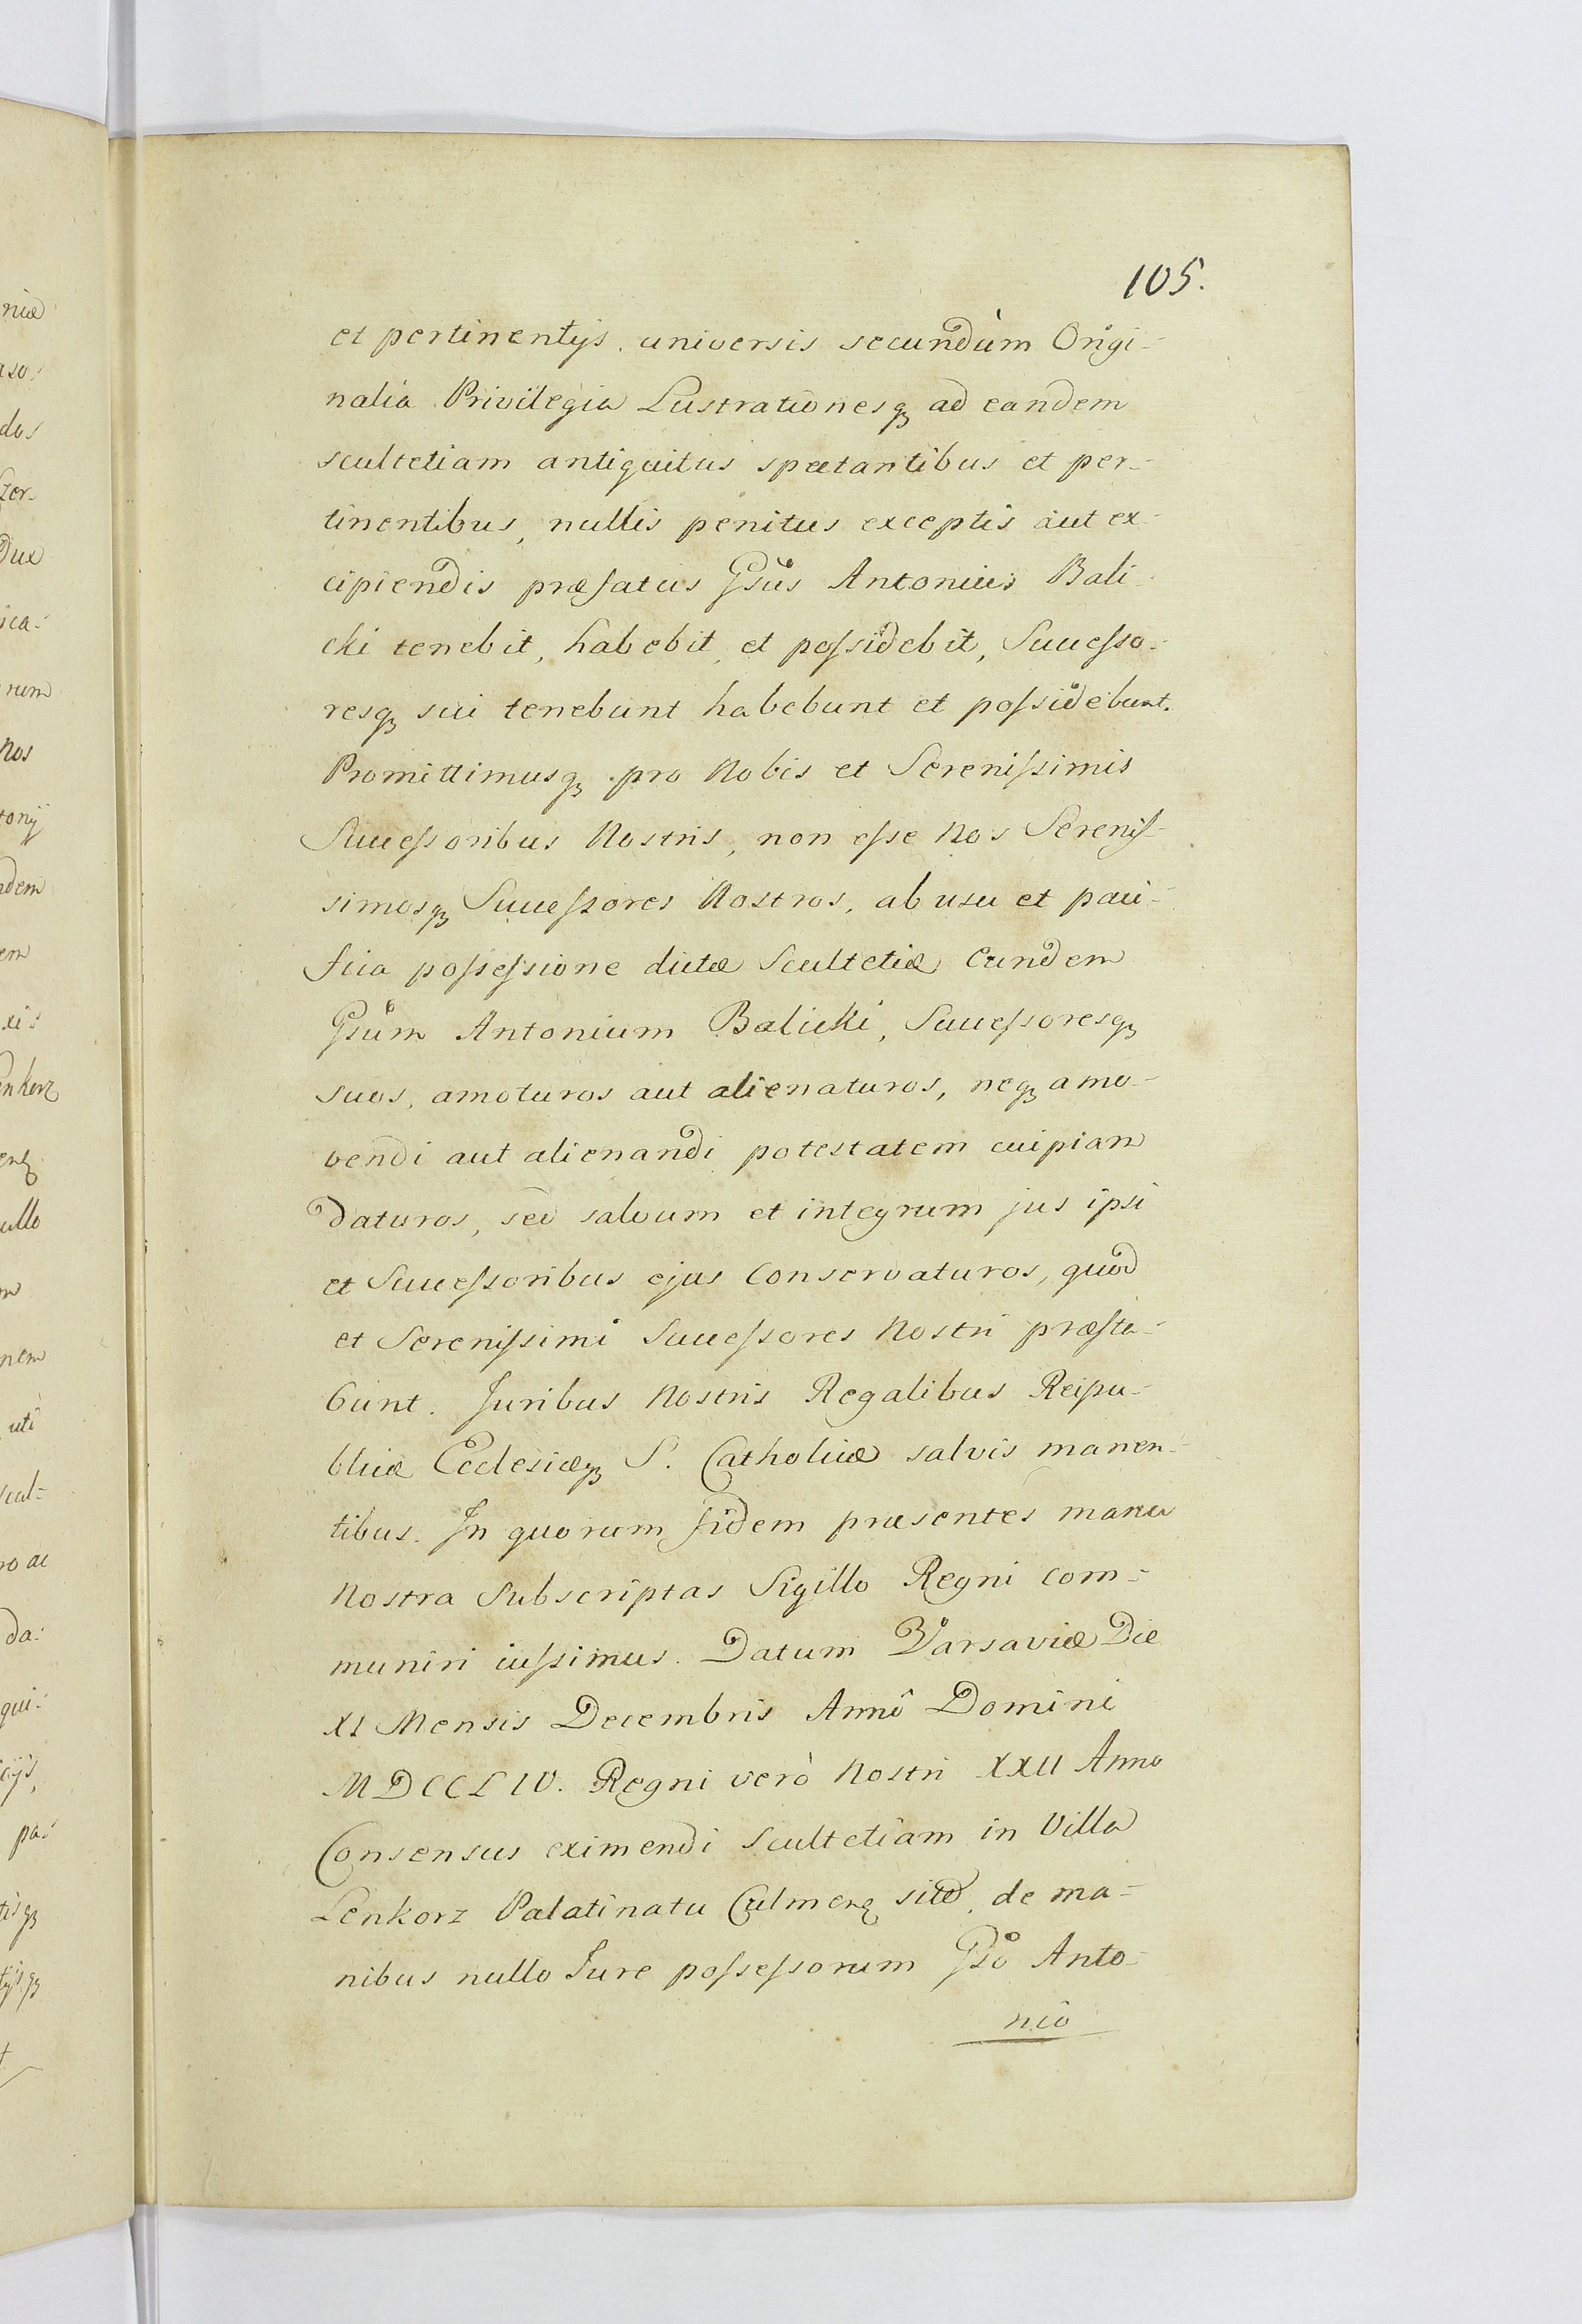 105.
et pertinentijs. universis secundùm Origi-
nalia Privilegia Lustrationesq₃ ad eandem
scultetiam antiquitus spectantibus et per-
tinentibus, nullis penitus exceptis aut ex-
cipiendis præfatus Gsus Antonius Bali-
cki tenebit, habebit, et poſsidebit, Succeſso-
resq₃ sui tenebunt habebunt et poſsidebunt.
Promittimusq₃ pro Nobis et Sereniſsimis
Succeſsoribus Nostris, non eſse Nos Sereniſ-
simosq₃ Succeſsores Nostros, ab usu et paci-
fica poſseſsione dictæ Scultetiæ Eundem
Gsum Antonium Balicki, Succeſsoresq₃
suos, amoturos aut alienaturos, neq₃ amo-
vendi aut alienandi potestatem cuipiam
daturos, sed salvum et integrum jus ipsi
et Succeſsoribus ejus Conservaturos, quod
et Sereniſsimi Succeſsores Nostri præſta-
bunt. Juribus Nostris Regalibus Reipu-
blicæ Ecclesiæq₃ S. Catholicæ salvis manen-
tibus. In quorum fidem præsentes manu
Nostra Subscriptas Sigillo Regni com-
muniri iuſsimus. Datum Varsaviæ Die
XI Mensis Decembris Annô Domini
MDCCLIV. Regni verò Nostri XXII Anno
Consensus eximendi Scultetiam in Villa
Lenkorz Palatinatu Culmenꝫ sitæ, de ma-
nibus nullo Jure poſseſsorum Gso Anto-
niô
niæ
dos
rum
Nos
nem
uti
da-
qui-